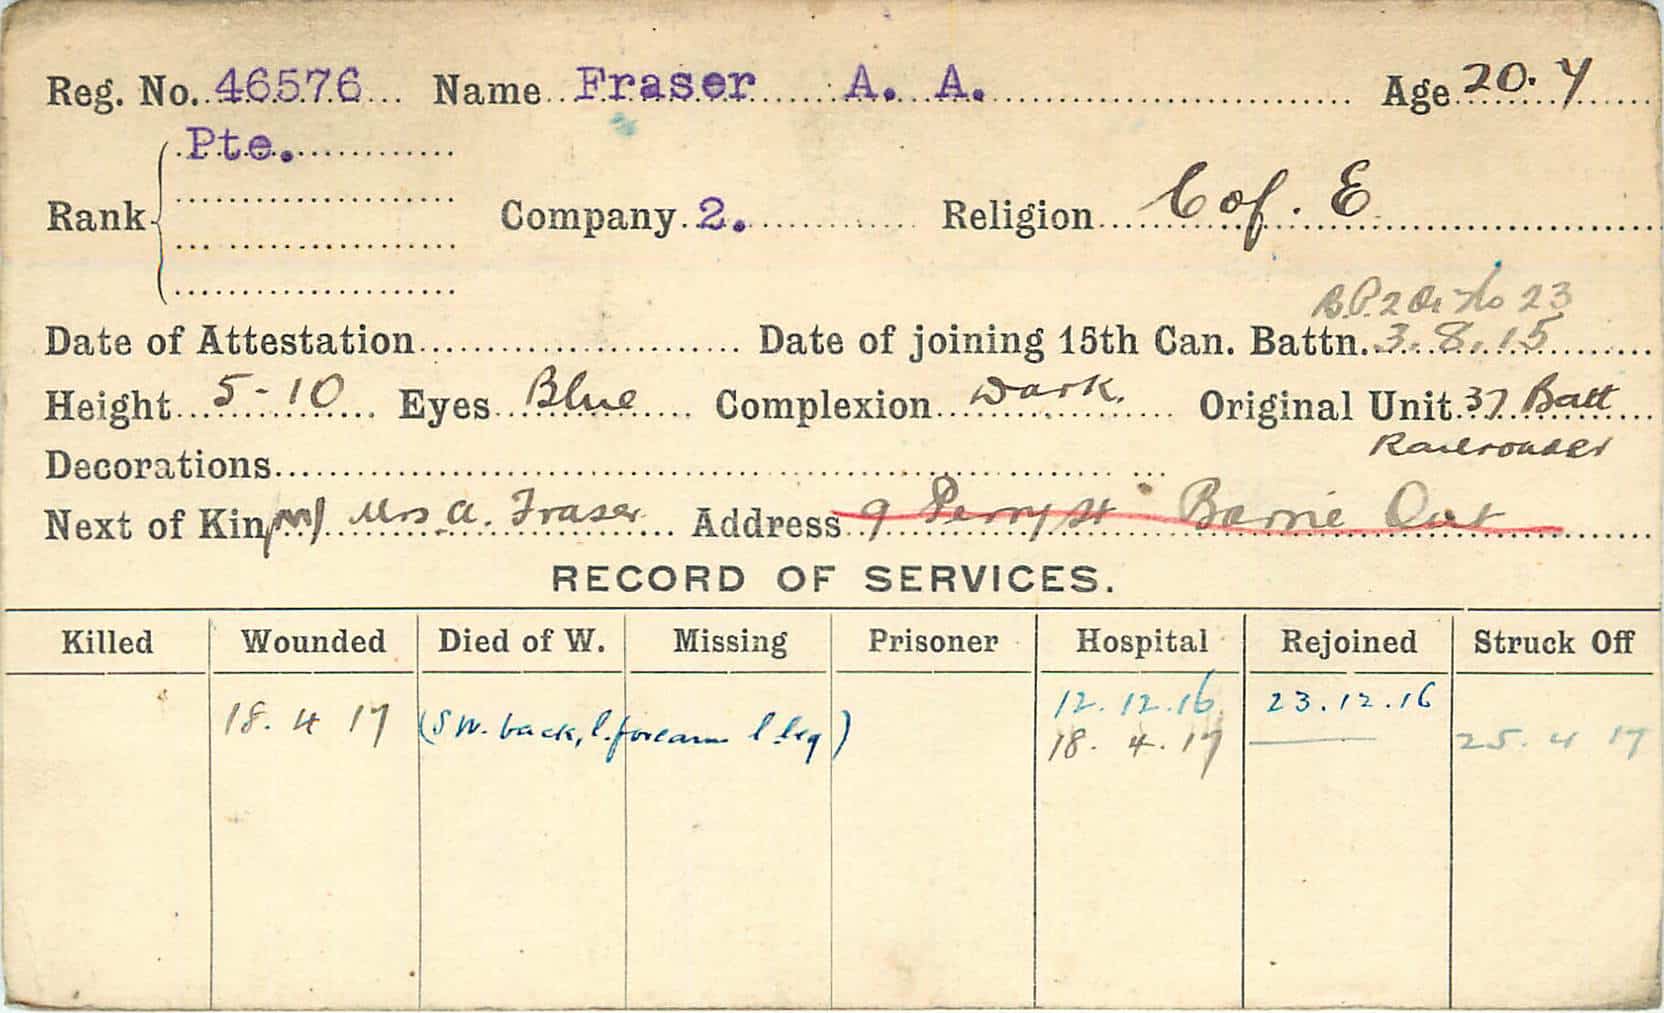 Reg. No. 46576 Name Fraser A. A. Age 20. Y
Pte.
Rank Company 2. Religion C of. E
B.P. 2 Or No 23
Date of Attestation Date of joining 15th Can. Battn. 3.8.15
Height 5-10 Eyes Blue Complexion Dark. Original Unit 37 Batt
Decorations Railroader
Next of Kin (M) Mrs A. Fraser Address 9 Perry St Barrie Ont
RECORD OF SERVICES.
Killed Wounded Died of W. Missing Prisoner Hospital Rejoined Struck Off
12.12.16 23.12.16
18. 4 17 (S W. back, l. forearm l leg) 18. 4. 17 25. 4 17